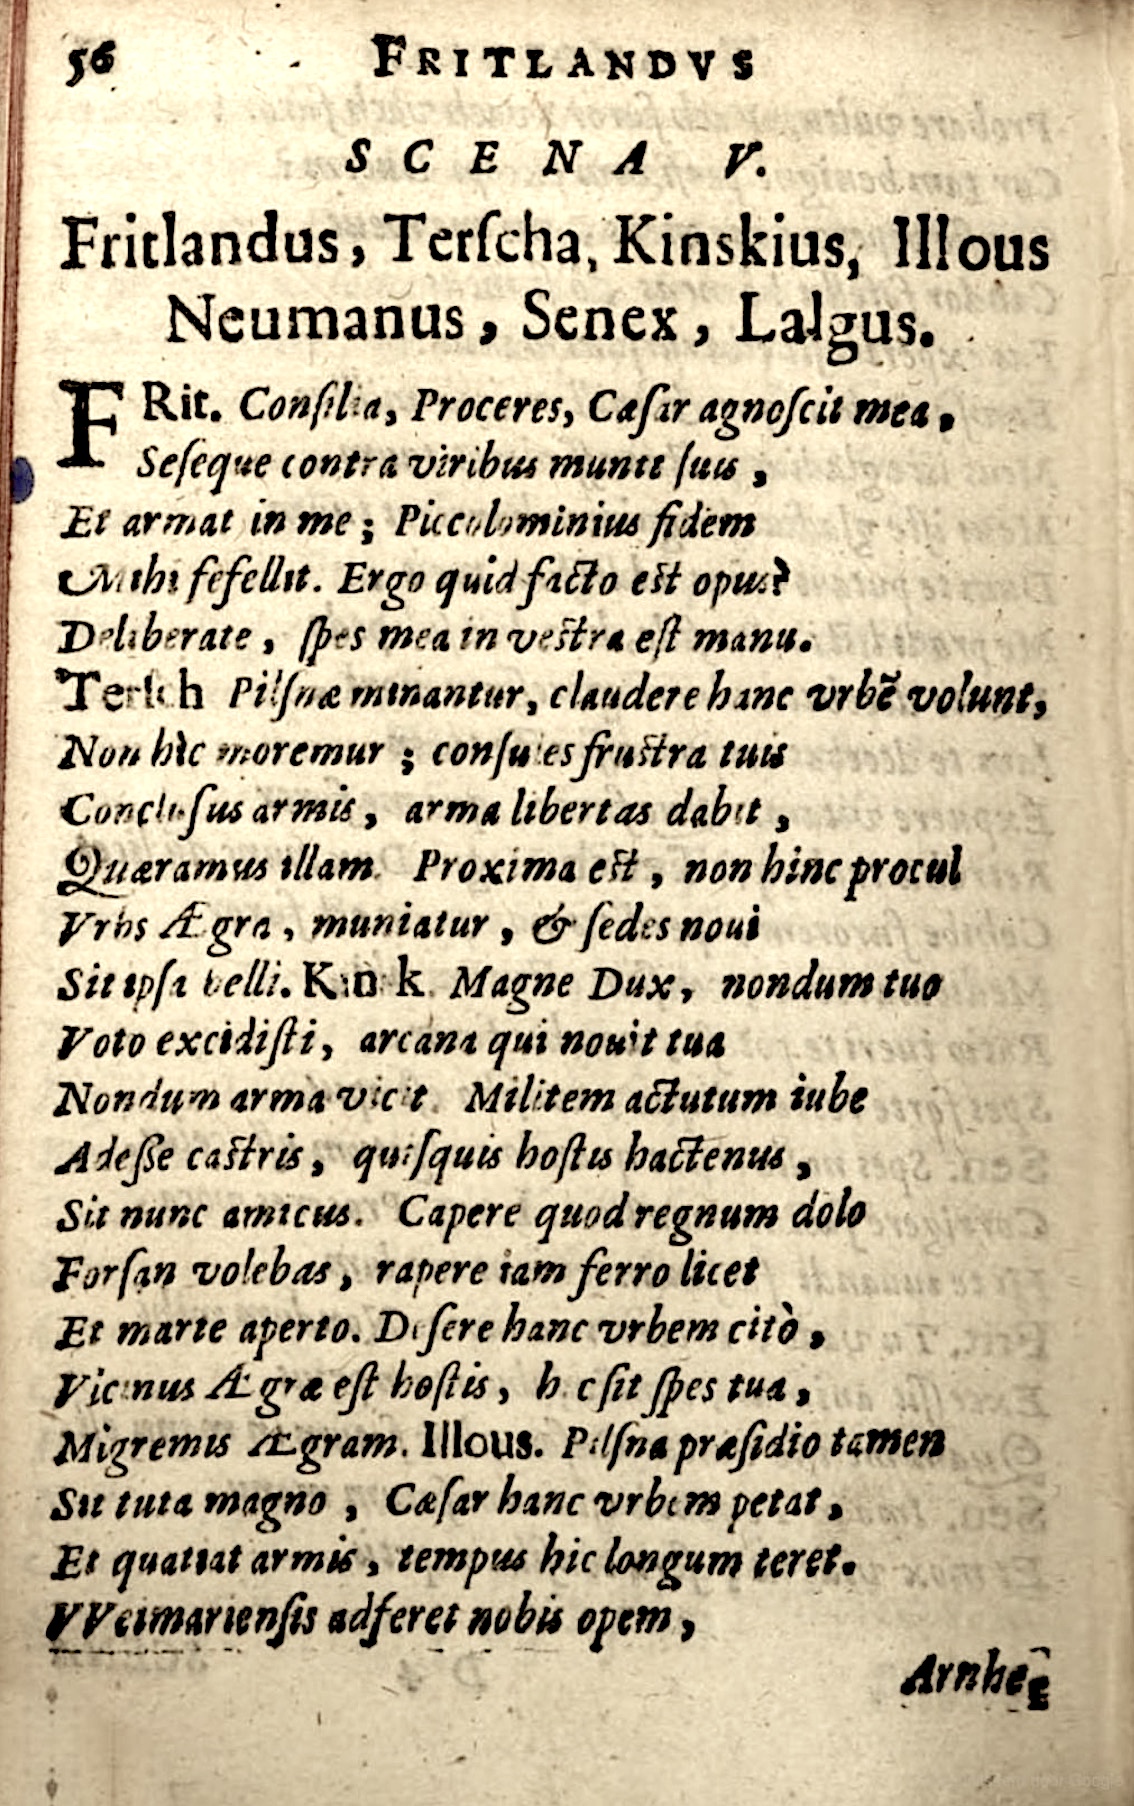 56 FRITLANDVS
SCENA V.
Fritlandus, Terſcha, Kinskius, Illous
Neumanus, Senex, Lalgus.
FRit. Conſilia, Proceres, Cæſar agnoſcit mea,
Seſeque contra viribus munit ſuis,
Et armat in me; Piccolominius fidem
Mihi fefellit. Ergo quid facto est opus?
Deliberate, ſpes mea in vestra eſt manu.
Terſch Pilſnæ minantur, claudere hanc vrbẽ volunt,
Non hic moremur; conſules frustra tuis
Concluſus armis, arma libertas dabit,
Quæramus illam. Proxima est, non hinc procul
Vrbs Ægra, muniatur, & ſedes noui
Sit ipſa belli. Kinsk. Magne Dux, nondum tuo
Voto excidiſti, arcana qui nouit tua
Nondum arma vicit. Militem actutum iube
Adeſſe castris, quiſquis hoſtis hactenus,
Sit nunc amicus. Capere quod regnum dolo
Forſan volebas, rapere iam ferro licet
Et marte aperto. Deſere hanc vrbem citò,
Vicinus Ægræ eſt hoſtis, hic ſit ſpes tua,
Migremus Ægram. Illous. Pilſna præſidio tamen
Sit tuta magno, Cæſar hanc vrbem petat,
Et quatiat armis, tempus hic longum teret.
VVeimarienſis adferet nobis opem,